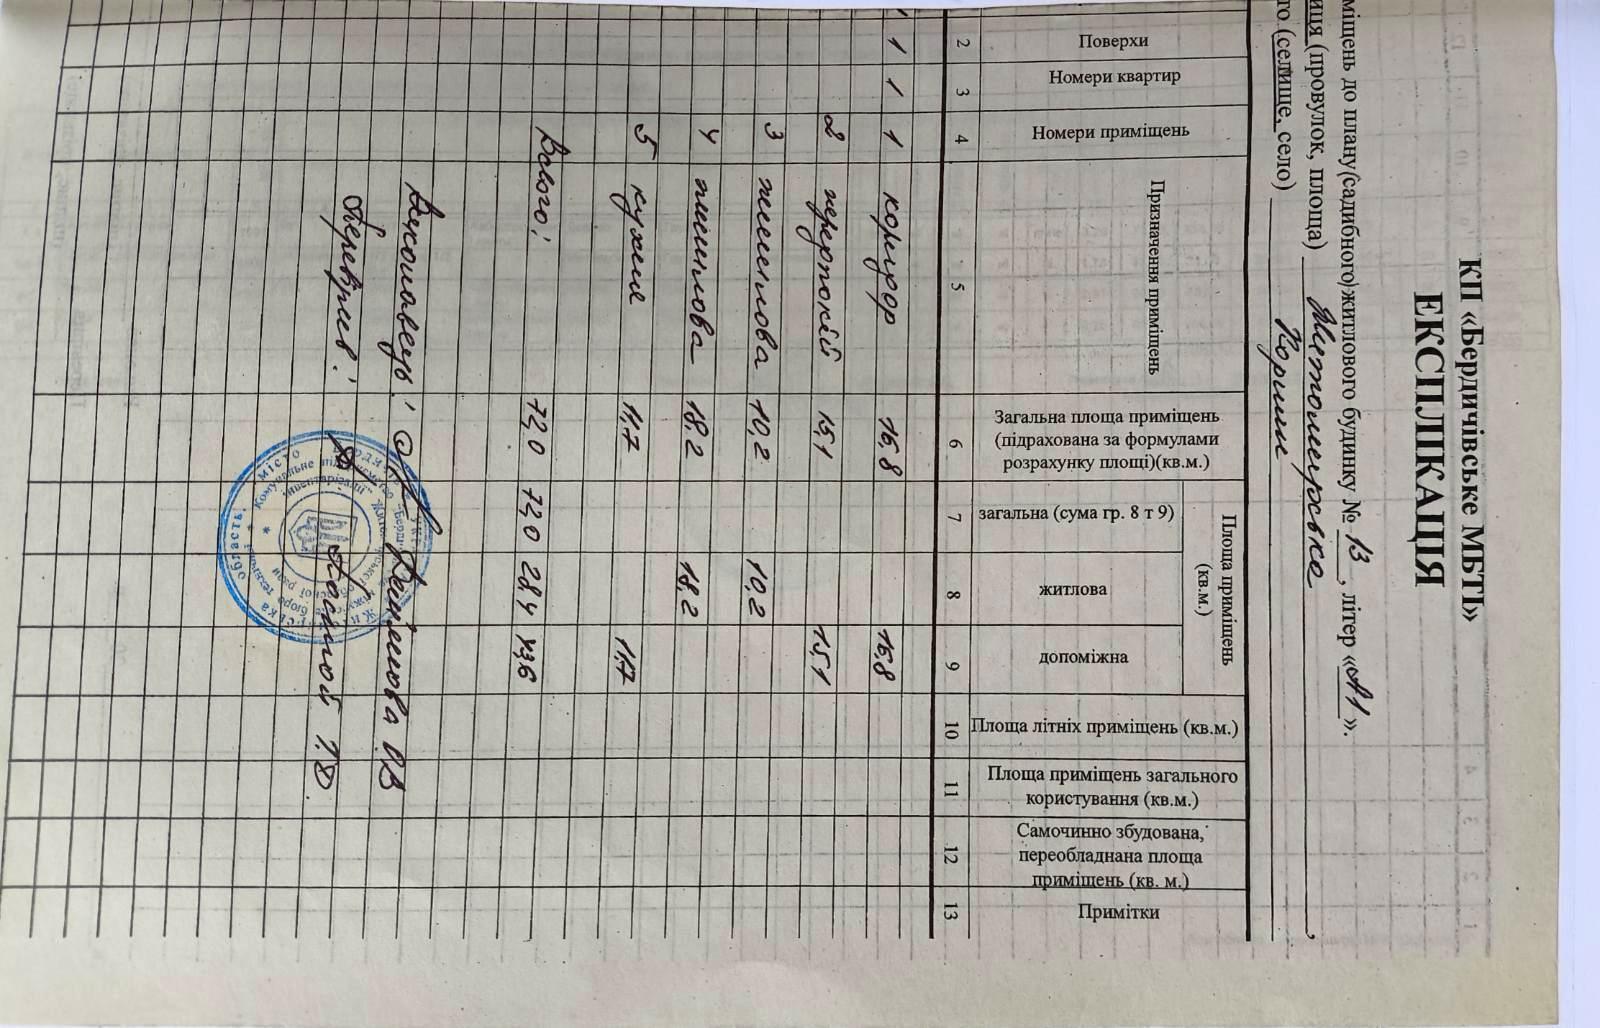 КП «Бердичівське МБТІ»
ЕКСПЛІКАЦІЯ
міщень до плану (садибного) житлового будинку № 13, літер «А1».
иця (провулок, площа) Житомирська
то (селище, село) Корнин
Поверхи
Номери квартир
Номери приміщень
Призначення приміщень
Загальна площа приміщень
(підрахована за формулами
розрахунку площі)(кв.м.)
Площа приміщень
(кв.м.)
загальна (сума гр. 8 т 9)
житлова
допоміжна
Площа літніх приміщень (кв.м.)
Площа приміщень загального
користування (кв.м.)
Самочинно збудована,
переобладнана площа
приміщень (кв. м.)
Примітки
2 3 4 5 6 7 8 9 10 11 12 13
1 1 1 коридор 16,8 16,8
2 передпокій 15,1 15,1
3 житлова 10,2 10,2
4 житлова 18,2 18,2
5 кухня 11,7 11,7
Всього: 72,0 72,0 28,4 43,6
Виконавець: О.В
Перевірив: